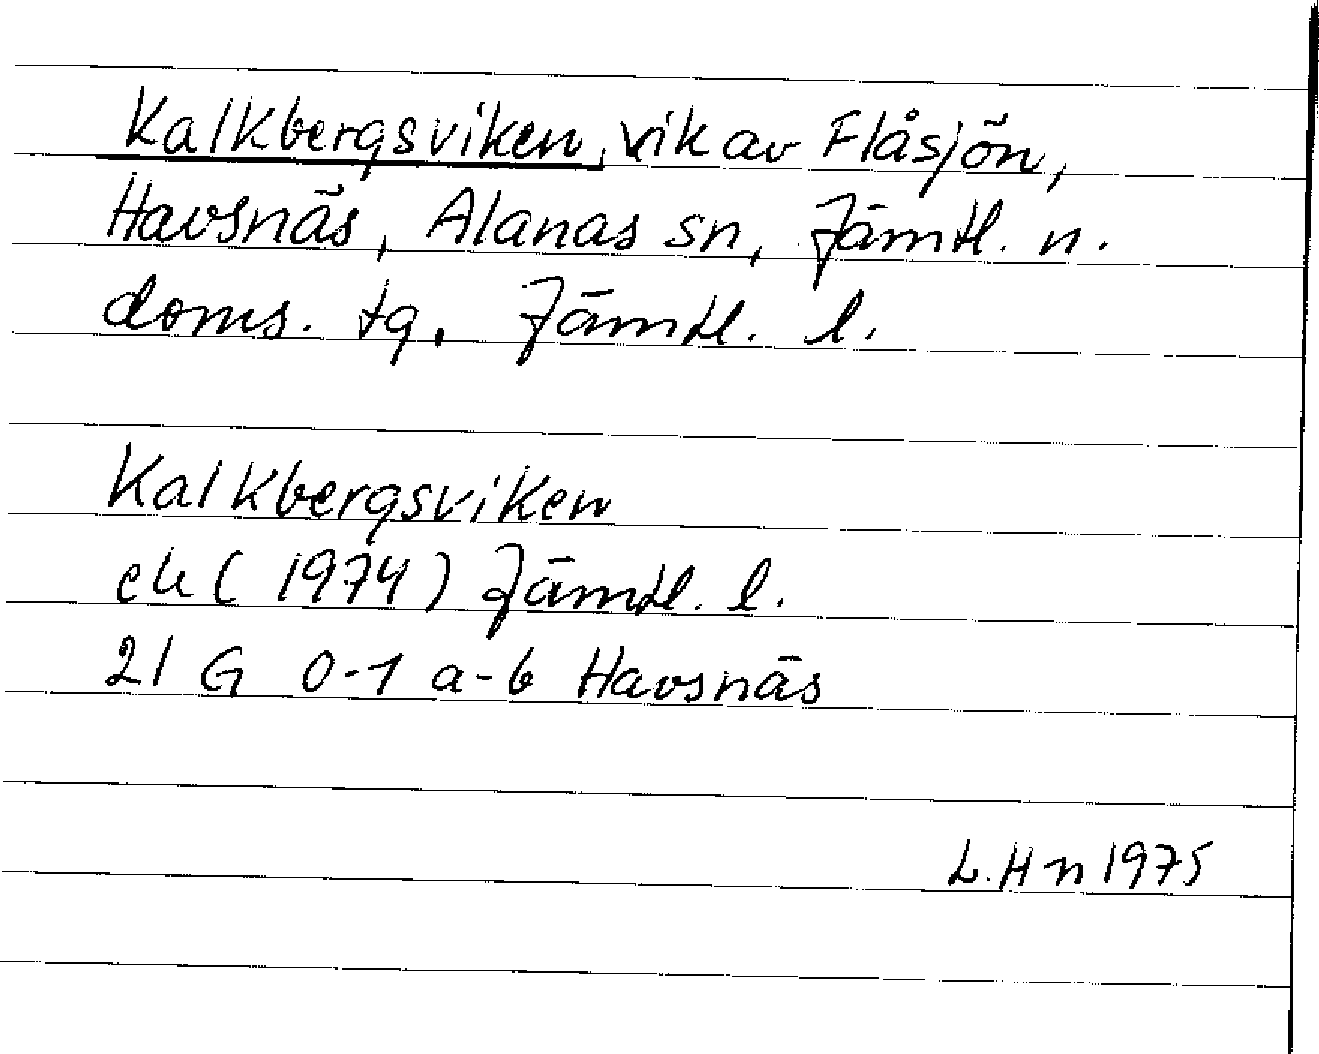 Kalkbergsviken, vik av Flåsjön,
Havsnäs, Alanäs sn, Jämtl. n.
doms. tg. Jämtl. l.
Kalkbergsviken
ek (1974) Jämtl. l.
21 G 0-1 a-b Havsnäs
L.Hn 1975